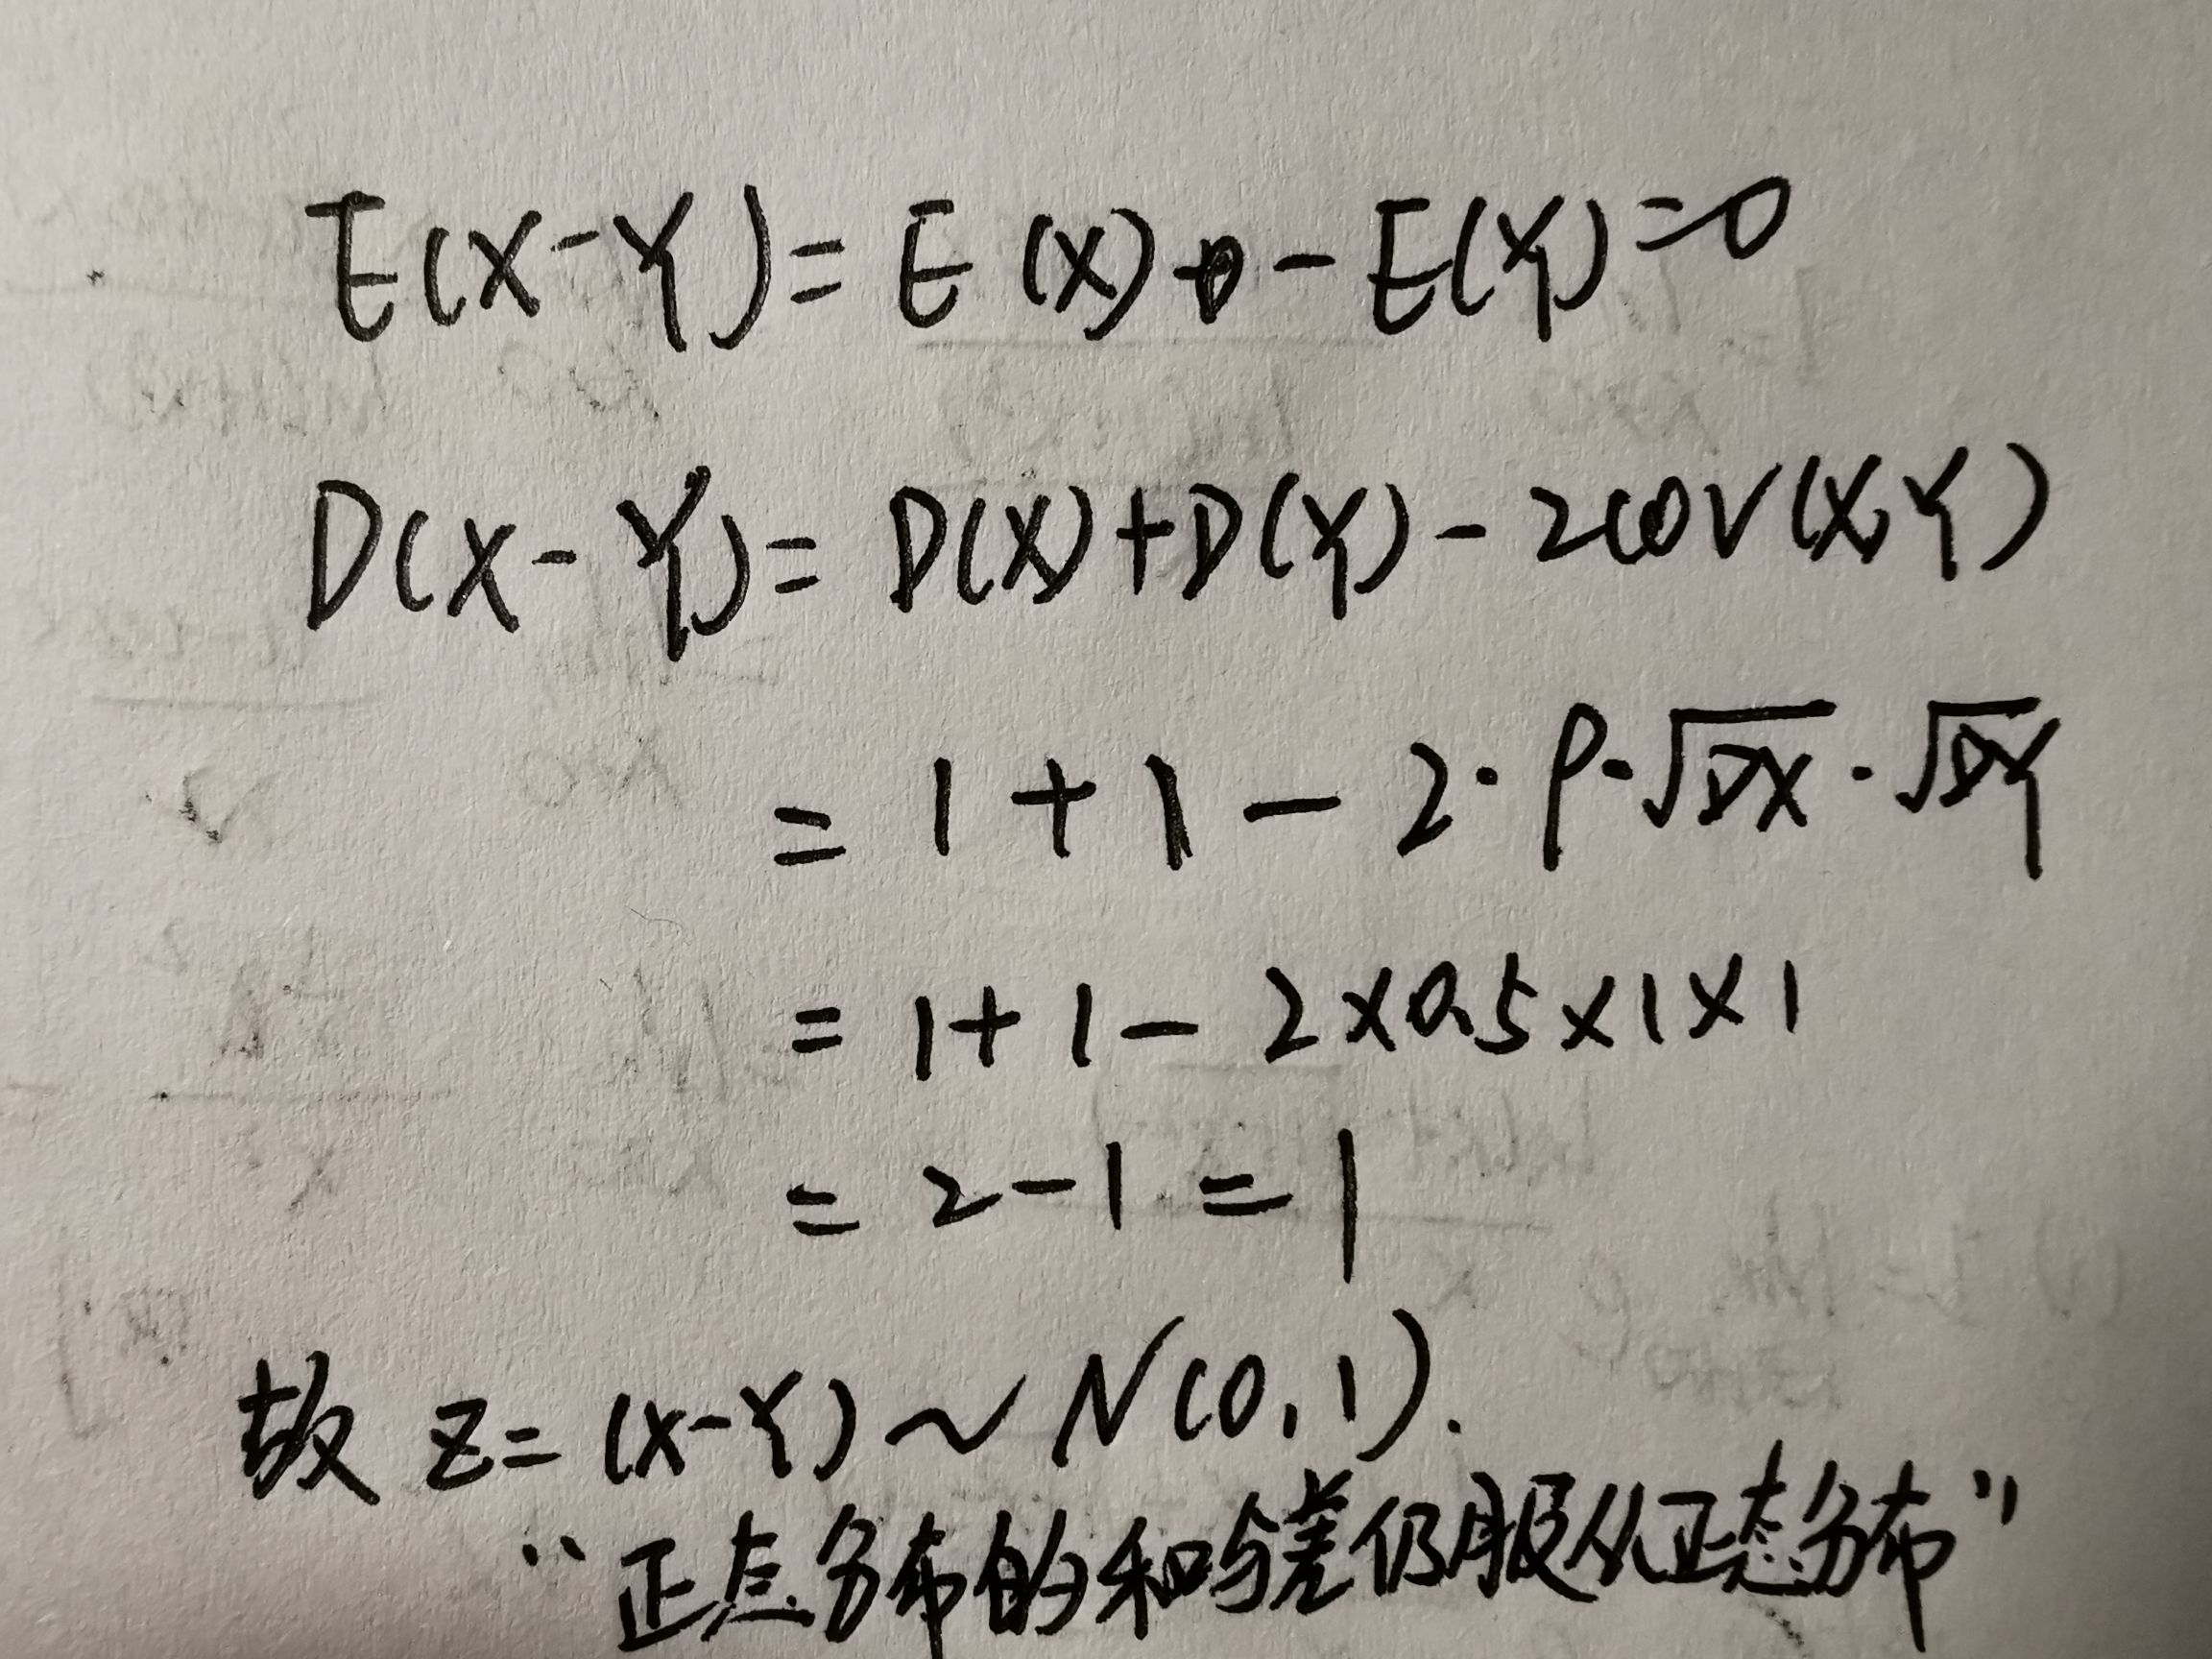 E(X-Y)=E(X)-E(Y)=0
D(X-Y)=D(X)+D(Y)-2COV(X,Y)
=1+1-2·ρ·√DX·√DY
=1+1-2×0.5×1×1
=2-1=1
故 Z=(X-Y)~N(0,1).
“正态分布的和与差仍服从正态分布”